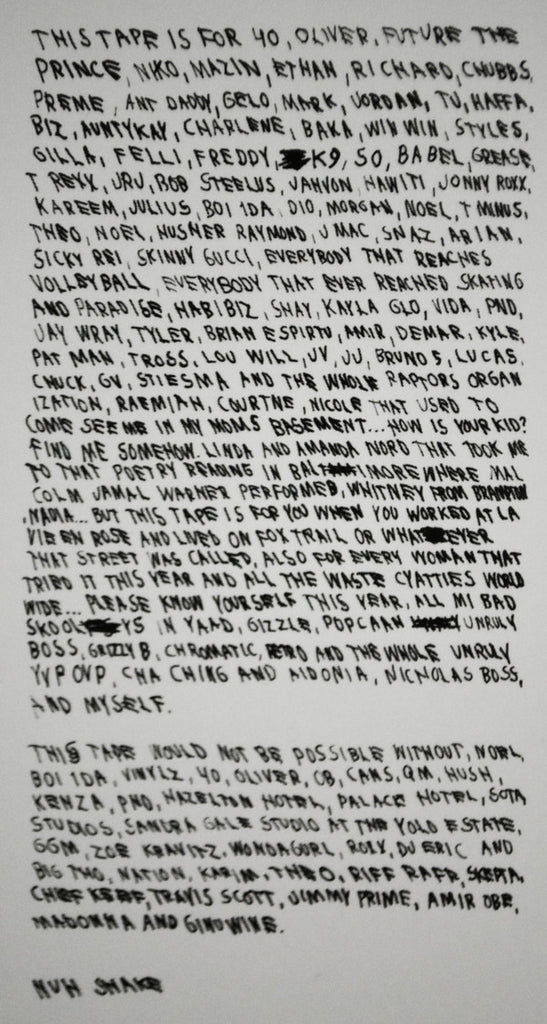 THIS TAPE IS FOR 40, OLIVER, FUTURE THE
PRINCE, NIKO, MAZIN, ETHAN, RICHARD, CHUBBS,
PREME, ANT DADDY, GELO, MARK, JORDAN, TJ, HAFFA,
BIZ, AUNTYKAY, CHARLENE, BAKA, WIN WIN, STYLES,
GILLA, FELLI, FREDDY, K9, SO, BABEL, GREASE,
T REXX, JRU, BOB STEELUS, JAHVON, HAWITI, JONNY ROXX,
KAREEM, JULIUS, BOI 1DA, DIO, MORGAN, NOEL, T MINUS,
THEO, NOEL, HUSHER RAYMOND, J MAC, SNAZ, ARIAN,
SICKY REI, SKINNY GUCCI, EVERYBODY THAT REACHES
VOLLEYBALL, EVERYBODY THAT EVER REACHED SKATING
AND PARADISE, HABIBIZ, SHAY, KAYLA GLO, VIDA, PND,
JAY WRAY, TYLER, BRIAN ESPIRTU, AMIR, DEMAR, KYLE,
PAT MAN, TROSS, LOU WILL, JV, JJ, BRUNO 5, LUCAS,
CHUCK, GV, STIESMA AND THE WHOLE RAPTORS ORGAN
IZATION, RAEMIAH, COURTNE, NICOLE THAT USED TO
COME SEE ME IN MY MOMS BASEMENT... HOW IS YOUR KID?
FIND ME SOMEHOW. LINDA AND AMANDA NORD THAT TOOK ME
TO THAT POETRY READING IN BALTIMORE WHERE MAL
COLM JAMAL WARNER PERFORMED, WHITNEY FROM BRAMPTON
, NADIA... BUT THIS TAPE IS FOR YOU WHEN YOU WORKED AT LA
VIE EN ROSE AND LIVED ON FOXTRAIL OR WHATEVER
THAT STREET WAS CALLED, ALSO FOR EVERY WOMAN THAT
TRIED IT THIS YEAR AND ALL THE WASTE CYATTIES WORLD
WIDE... PLEASE KNOW YOURSELF THIS YEAR, ALL MI BAD
SKOOL YS IN YAAD, GIZZLE, POPCAAN UNRULY
BOSS, GRIZZLY B, CHROMATIC, RETRO AND THE WHOLE UNRULY
YVP OVP, CHA CHING AND AIDONIA, NICHOLAS BOSS,
AND MYSELF.

THIS TAPE WOULD NOT BE POSSIBLE WITHOUT, NOEL,
BOI 1DA, VINYLZ, 40, OLIVER, CB, CAMS, QM, HUSH,
KENZA, PND, HAZELTON HOTEL, PALACE HOTEL, SOTA
STUDIOS, SANDRA GALE STUDIO AT THE YOLO ESTATE,
GGM, ZOE KRAVITZ, WONDAGURL, ROXX, DJ ERIC AND
BIG THO, NATION, KARIM, THEO, RIFF RAFF, SKEPTA,
CHIEF KEEF, TRAVIS SCOTT, JIMMY PRIME, AMIR OBE,
MADONNA AND GINUWINE.

NUH SHAKE